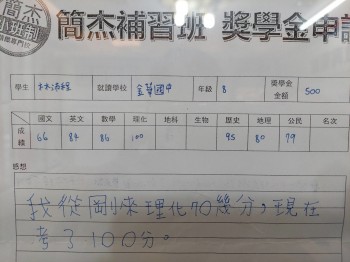 簡杰
小班制
簡杰補習班 獎學金申請
學生 就讀學校 金華國中 年級 8 獎學金金額 500
國文 英文 數學 理化 地科 生物 歷史 地理 公民 名次
成績 66 84 86 100 95 80 79
感想
我從剛來理化70幾分,現在
考了100分。